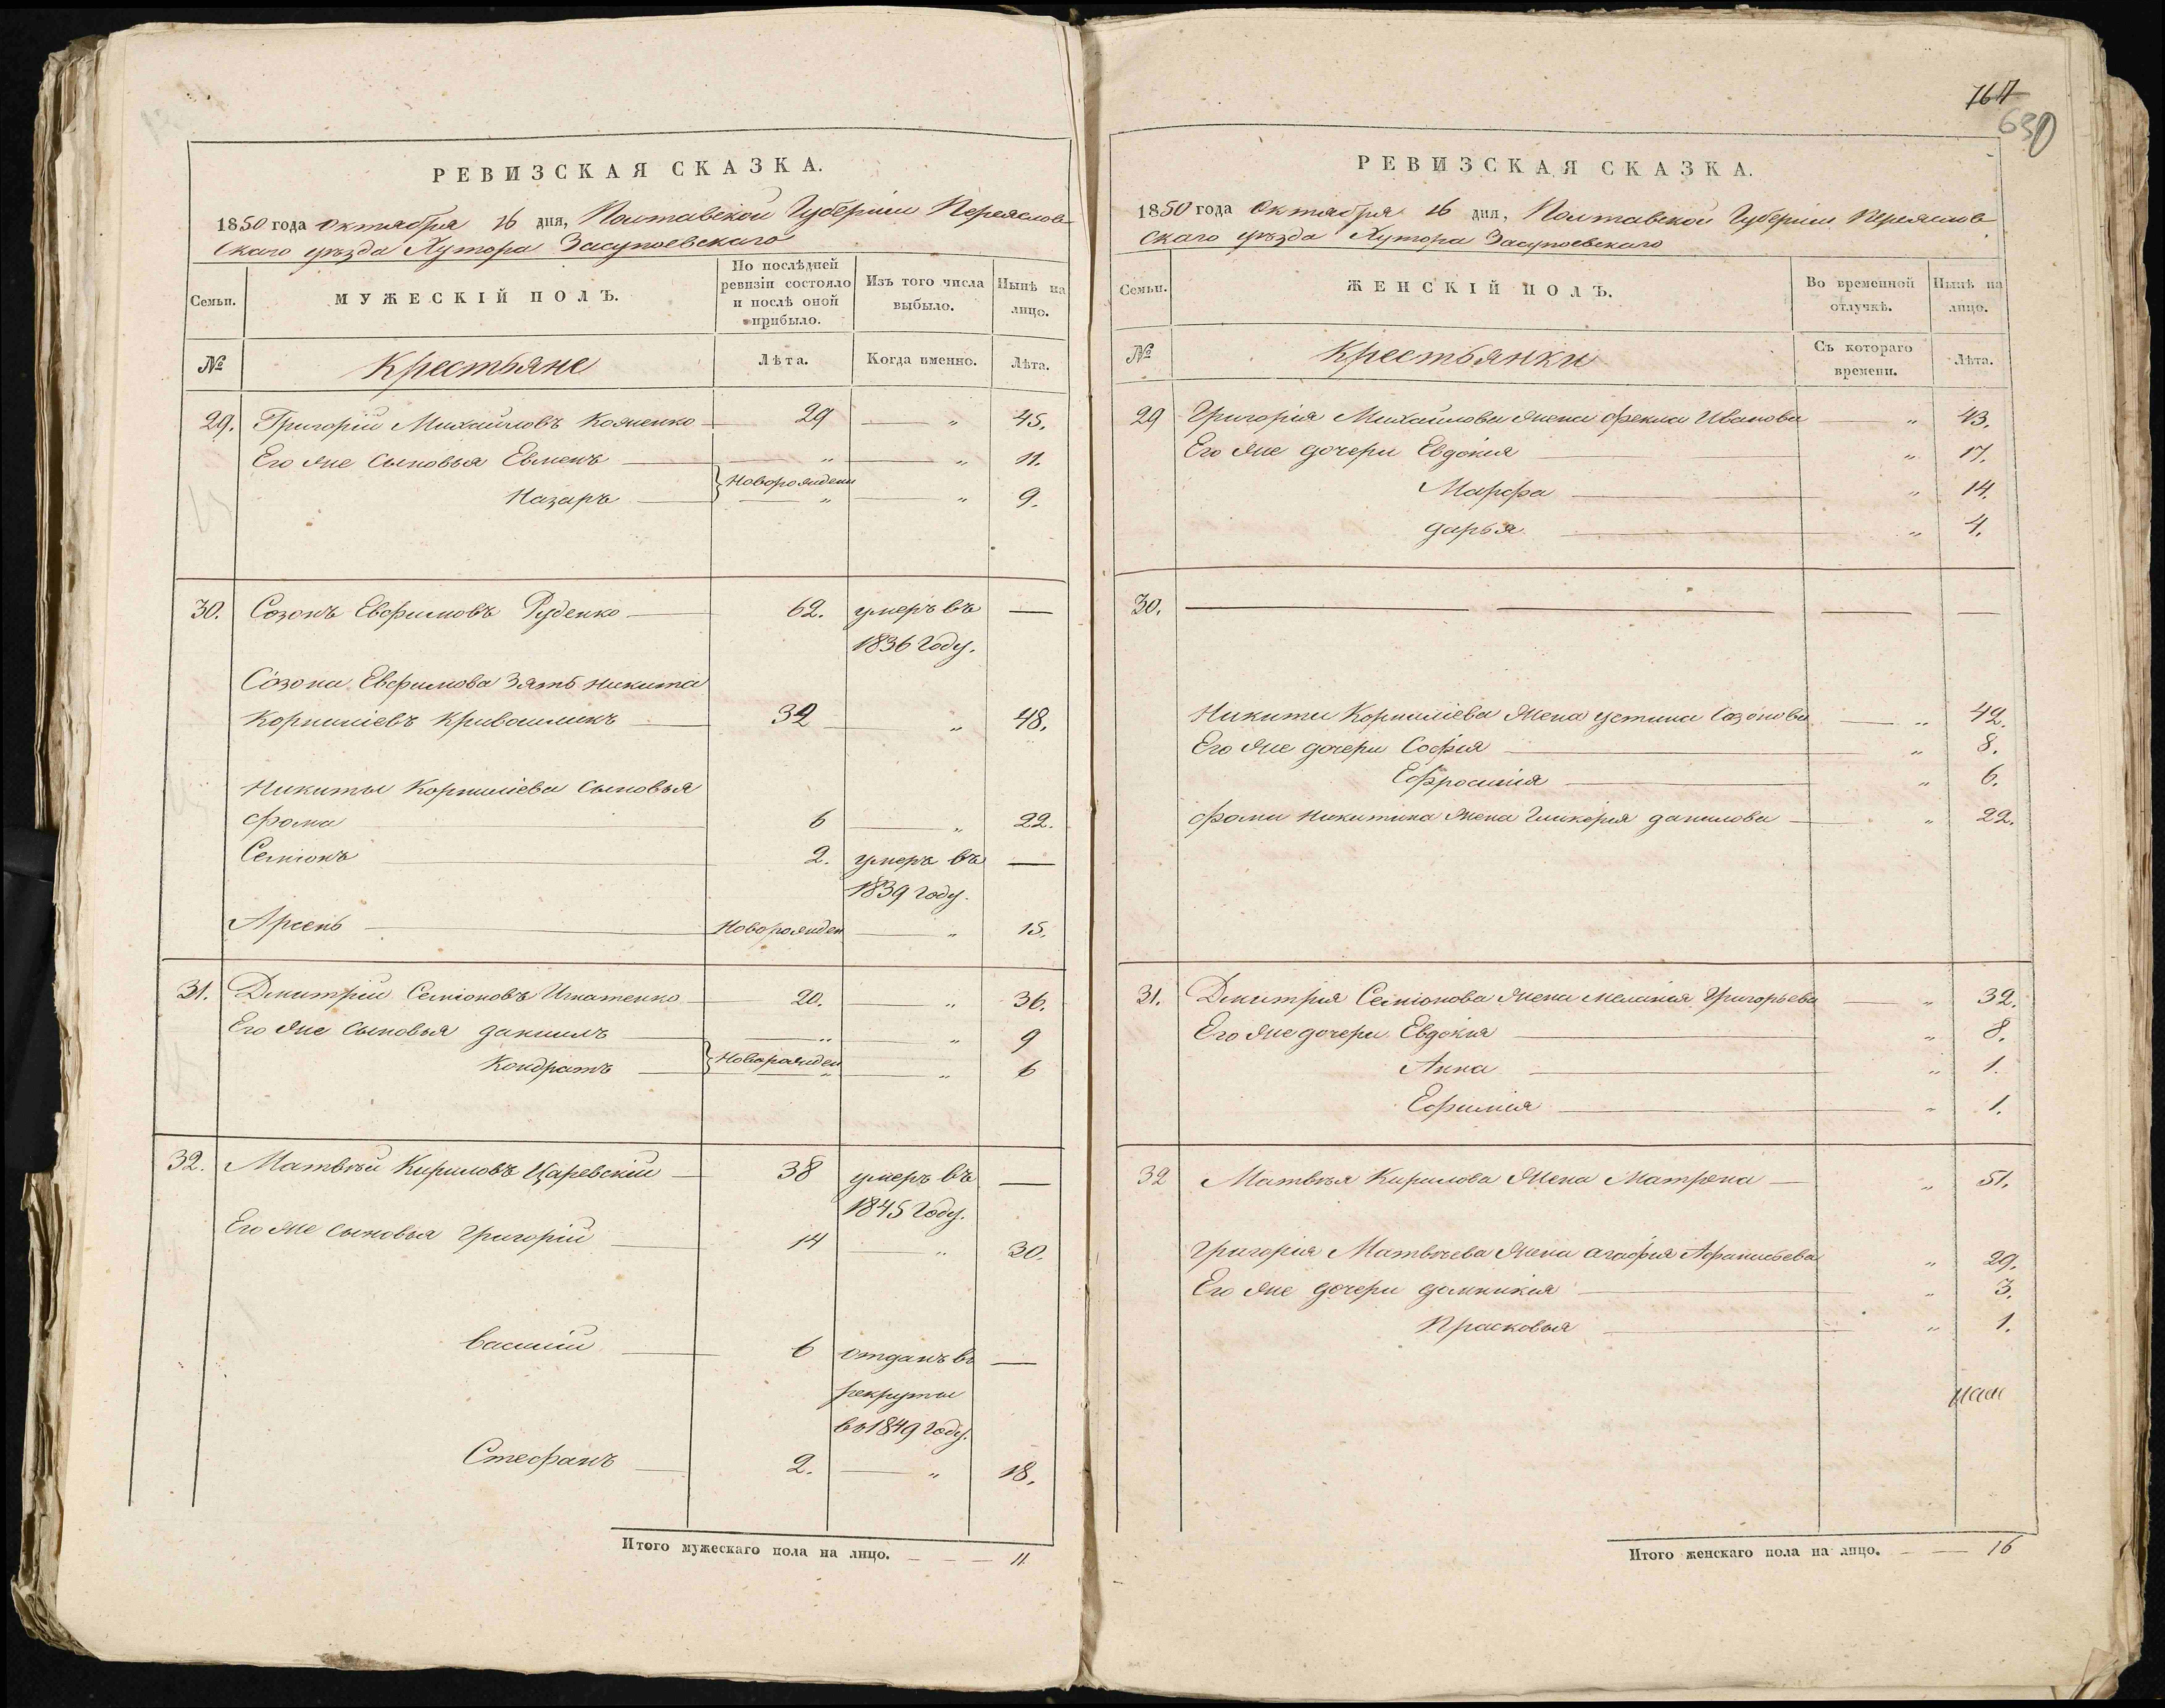 РЕВИЗСКАЯ СКАЗКА.
1850 года октября 16 дня, Полтавской Губерніи Переяслов-
скаго уѣзда Хутора Засупоевскаго
Семьи.
МУЖЕСКІЙ ПОЛЪ.
По послѣдней ревизіи состояло и послѣ оной прибыло.
Изъ того числа выбыло.
Нынѣ на лицо.
№
Крестьяне
Лѣта.
Когда именно.
Лѣта.
29. Григорій Михайловъ 29 — „ 45.
Его же сыновья Евменъ — „ — „ 11.
Новорожден
Назаръ — „ — „ 9.
30. Созонъ Евфимовъ Руденко — 62. умеръ въ —
1836 Году.
Созона Евфимова Зять Никита
Корниліевъ — 32 — „ 48.
Никиты Корниліева Сыновья
Фома — 6 — „ 22.
Семіонъ — 2. умеръ въ —
1839 году.
Арсень — Новорожден — „ 15.
31. Дмитрій Семіоновъ Игнатенко — 20. — „ 36.
Его же сыновья Даніилъ — „ — „ 9
Новорожден
Кондратъ — „ — „ 6
32. Матвѣй Кириловъ Царевскій — 38 умеръ въ —
1845 Году.
Его же сыновья Григорій — 14 — „ 30.
Василій — 6 отданъ въ —
рекруты
въ 1849 Году.
Стефанъ — 2. — „ 18.
Итого мужескаго пола на лицо. — — — 11.
630
РЕВИЗСКАЯ СКАЗКА.
1850 года Октября 16 дня, Полтавской Губерніи Переяслов-
скаго уѣзда Хутора Засупоевскаго
Семьи.
ЖЕНСКІЙ ПОЛЪ.
Во временной отлучкѣ.
Нынѣ на лицо.
№
Крестьянки
Съ котораго времени.
Лѣта.
29 Григорія Михайлова жена Фекла Иванова — „ 43.
Его же дочери Евдокія — „ 17.
Марфа — „ 14.
Дарья — „ 4.
30. — — — —
Никиты Корниліева Жена Устина Созонова — „ 42.
Его же дочери Софія — „ 8.
Ефросинія — „ 6.
Фомы Никитина Жена Гликерія Данилова — „ 22.
31. Дмитрія Семіонова жена Меланія Григорьева — „ 32.
Его же дочери Евдокія — „ 8.
Анна — „ 1.
Ефимія — „ 1.
32 Матвѣя Кирилова Жена Матрена — „ 51.
Григорія Матвѣева Жена Агафія Афанасьева „ 29.
Его же дочери Домникія — „ 3.
Прасковья — „ 1.
Итого женскаго пола на лицо. — — 16